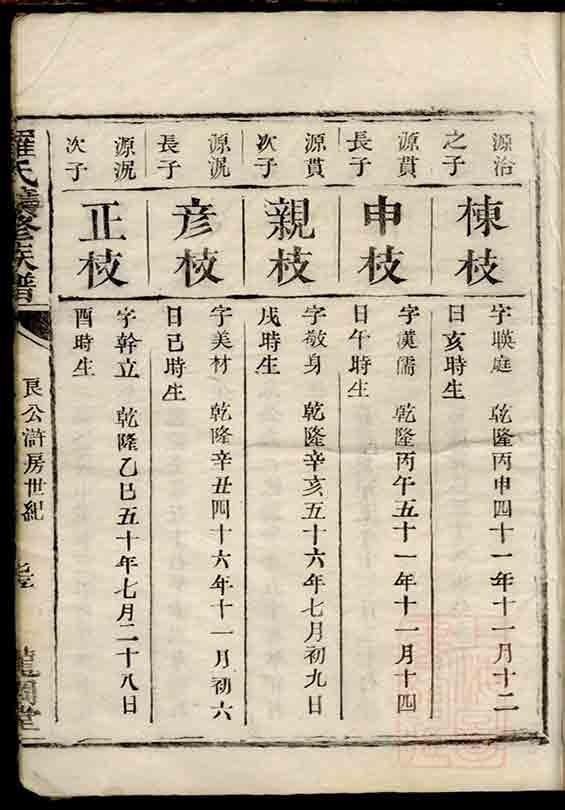 源治
之子
棟枝
字暎庭 乾隆丙申四十一年十一月十二
日亥時生
源貫
長子
申枝
字漢儒 乾隆丙午五十一年十一月十四
日午時生
源貫
次子
親枝
字敬身 乾隆辛亥五十六年七月初九日
戌時生
源淣
長子
彦枝
字美材 乾隆辛丑四十六年十一月初六
日己時生
源淣
次子
正枝
字幹立 乾隆乙巳五十年七月二十八日
酉時生
羅氏修族譜
艮公滸房世紀
堂